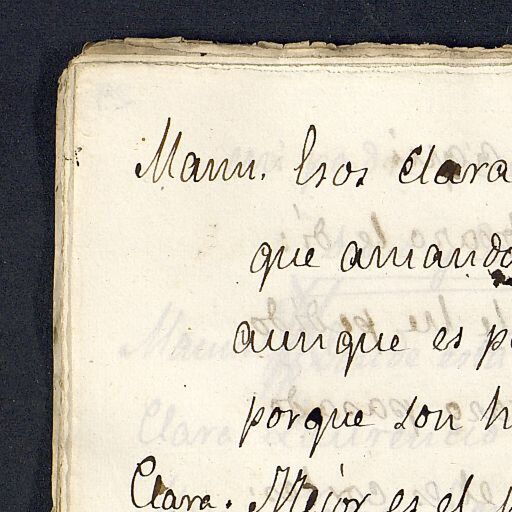 Manu. Esos Clara
que amando
aunque es p
porque son h
Clara. Mejor es el